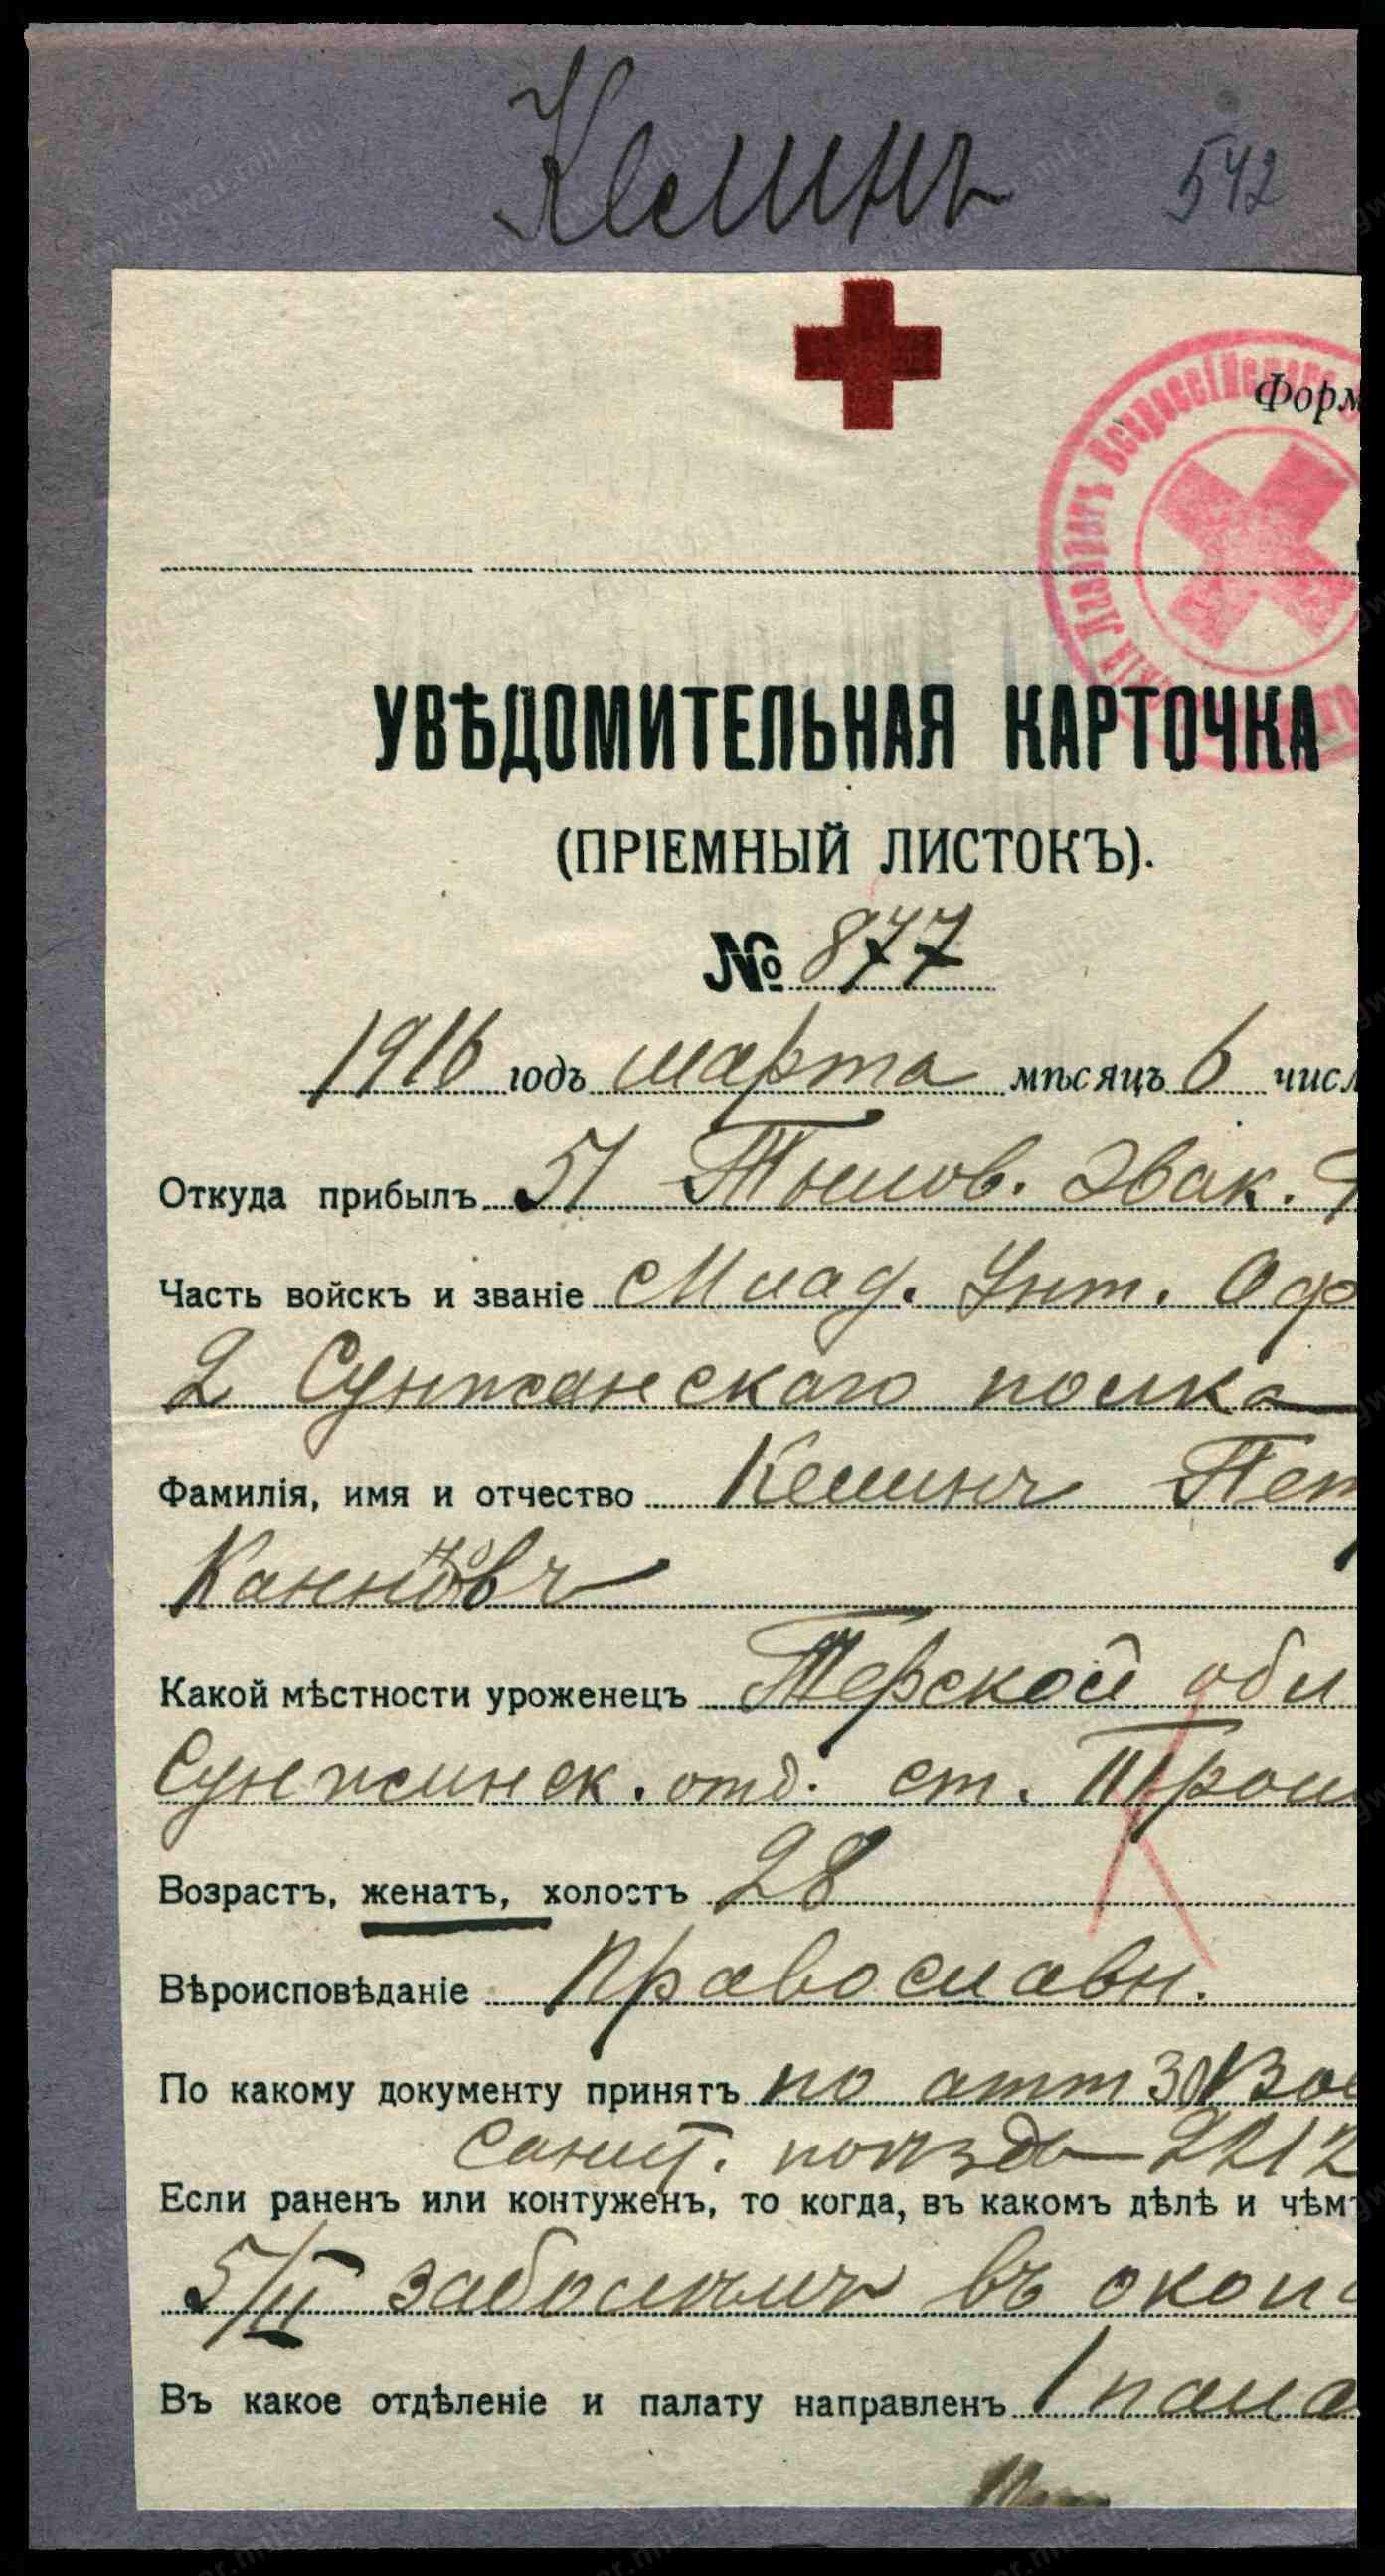 Келинъ 542
Форм
Лазаретъ Всероссійскаго
УВѢДОМИТЕЛЬНАЯ КАРТОЧКА
(ПРІЕМНЫЙ ЛИСТОКЪ).
№ 877
1916 годъ марта мѣсяцъ 6 числ
Откуда прибылъ 51 Тылов. Эвак.
Часть войскъ и званіе Млад. Унт. Оф
2 Сунженскаго полка
Фамилія, имя и отчество Келинъ Пет
Какой мѣстности уроженецъ Терской обл
Сунжинск. отд. ст. Трои
Возрастъ, женатъ, холостъ 28
Вѣроисповѣданіе Православн.
По какому документу принятъ по атт 30 Вое
санит. поѣзда 2212
Если раненъ или контуженъ, то когда, въ какомъ дѣлѣ и чѣмъ
5/II заболѣлъ въ окоп
Въ какое отдѣленіе и палату направленъ 1 пала